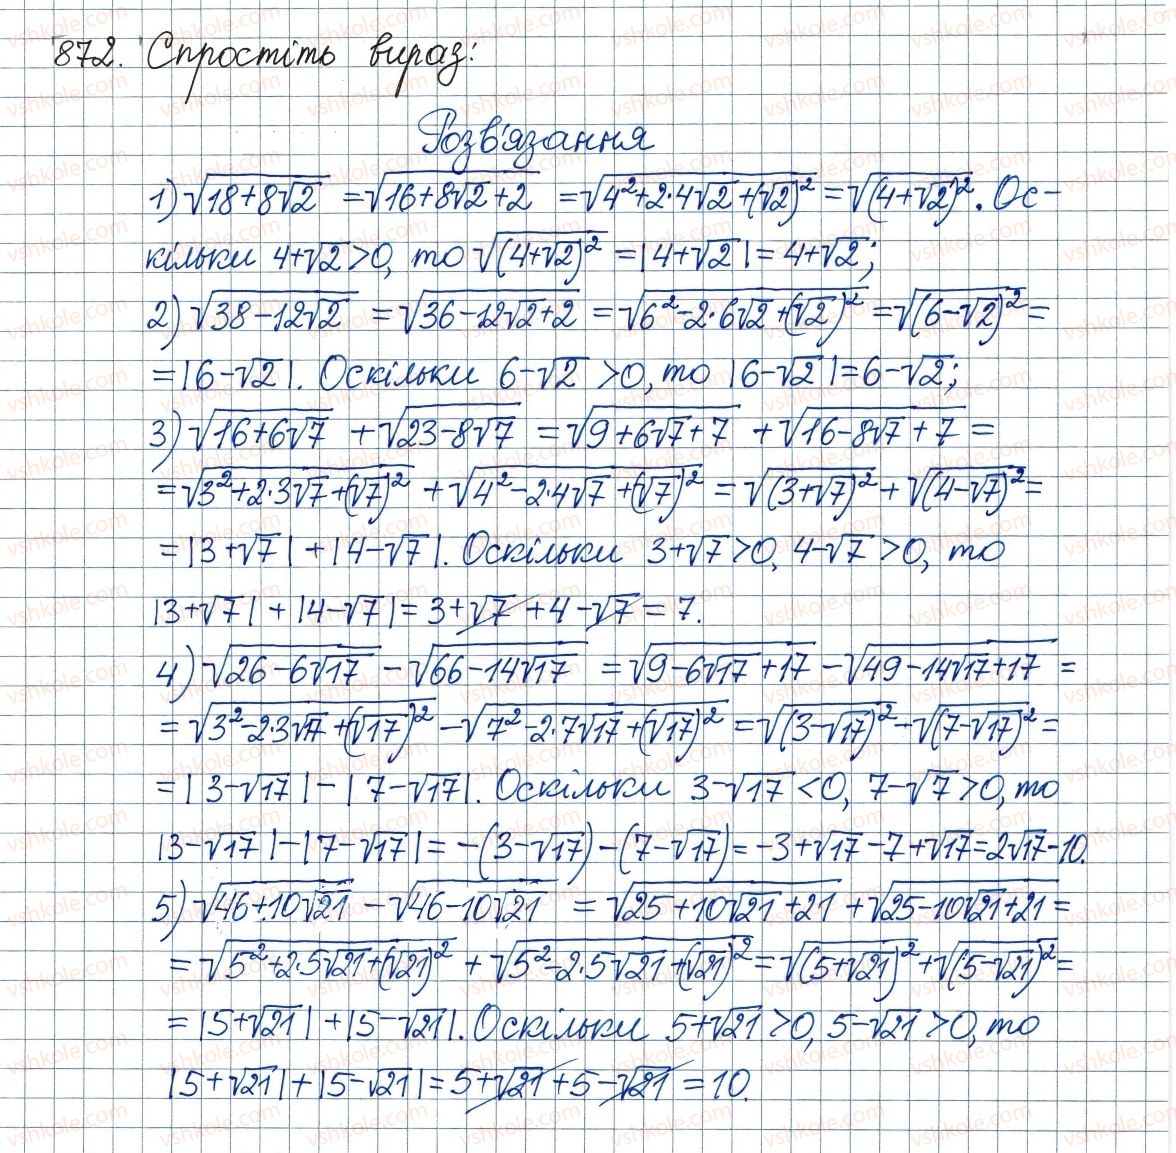 872. Спростіть вираз:
Розв'язання
1) √(18+8√2) = √(16+8√2+2) = √(4²+2·4√2+(√2)²) = √((4+√2)²). Ос-
кільки 4+√2>0, то √((4+√2)²) = |4+√2| = 4+√2;
2) √(38-12√2) = √(36-12√2+2) = √(6²-2·6√2+(√2)²) = √((6-√2)²) =
= |6-√2|. Оскільки 6-√2 >0, то |6-√2| = 6-√2;
3) √(16+6√7) + √(23-8√7) = √(9+6√7+7) + √(16-8√7+7) =
= √(3²+2·3√7+(√7)²) + √(4²-2·4√7+(√7)²) = √((3+√7)²) + √((4-√7)²) =
= |3+√7| + |4-√7|. Оскільки 3+√7>0, 4-√7>0, то
|3+√7| + |4-√7| = 3+√7+4-√7 = 7.
4) √(26-6√17) - √(66-14√17) = √(9-6√17+17) - √(49-14√17+17) =
= √(3²-2·3√17+(√17)²) - √(7²-2·7√17+(√17)²) = √((3-√17)²) - √((7-√17)²) =
= |3-√17| - |7-√17|. Оскільки 3-√17<0, 7-√7>0, то
|3-√17| - |7-√17| = -(3-√17) - (7-√17) = -3+√17-7+√17 = 2√17-10.
5) √(46+10√21) - √(46-10√21) = √(25+10√21+21) + √(25-10√21+21) =
= √(5²+2·5√21+(√21)²) + √(5²-2·5√21+(√21)²) = √((5+√21)²) + √((5-√21)²) =
= |5+√21| + |5-√21|. Оскільки 5+√21>0, 5-√21>0, то
|5+√21| + |5-√21| = 5+√21+5-√21 = 10.